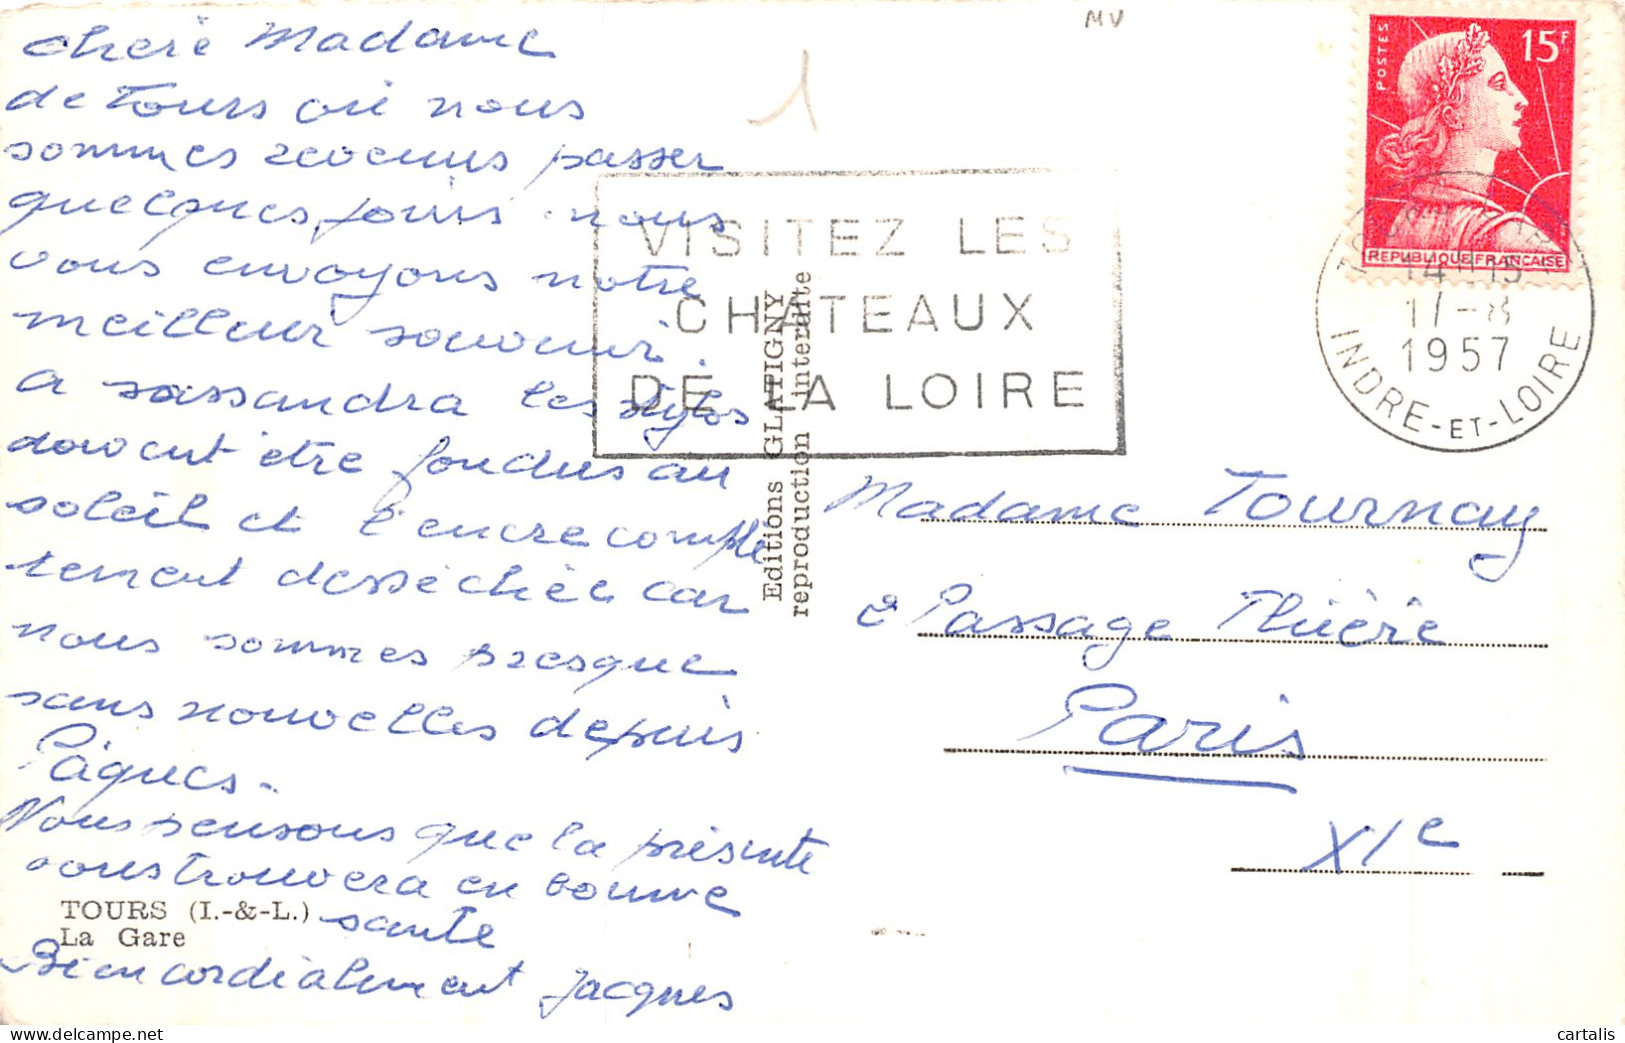 Chère Madame
de Tours où nous
sommes revenus passer
quelques jours nous
vous envoyons notre
meilleur souvenir.
A Sassandra les stylos
doivent être fondus au
soleil et l'encre complè
tement desséchée car
nous sommes presque
sans nouvelles depuis
Pâques.
Nous pensons que la présente
vous trouvera en bonne
santé
Bien cordialement Jacques
TOURS (I.-&-L.)
La Gare
Editions GLATIGNY
reproduction interdite
MV
1
VISITEZ LES
CHATEAUX
DE LA LOIRE
POSTES
15F
REPUBLIQUE FRANÇAISE
17-8
1957
INDRE-ET-LOIRE
Madame Tournay
2 Passage Thiéré
Paris
XIe
cartalis